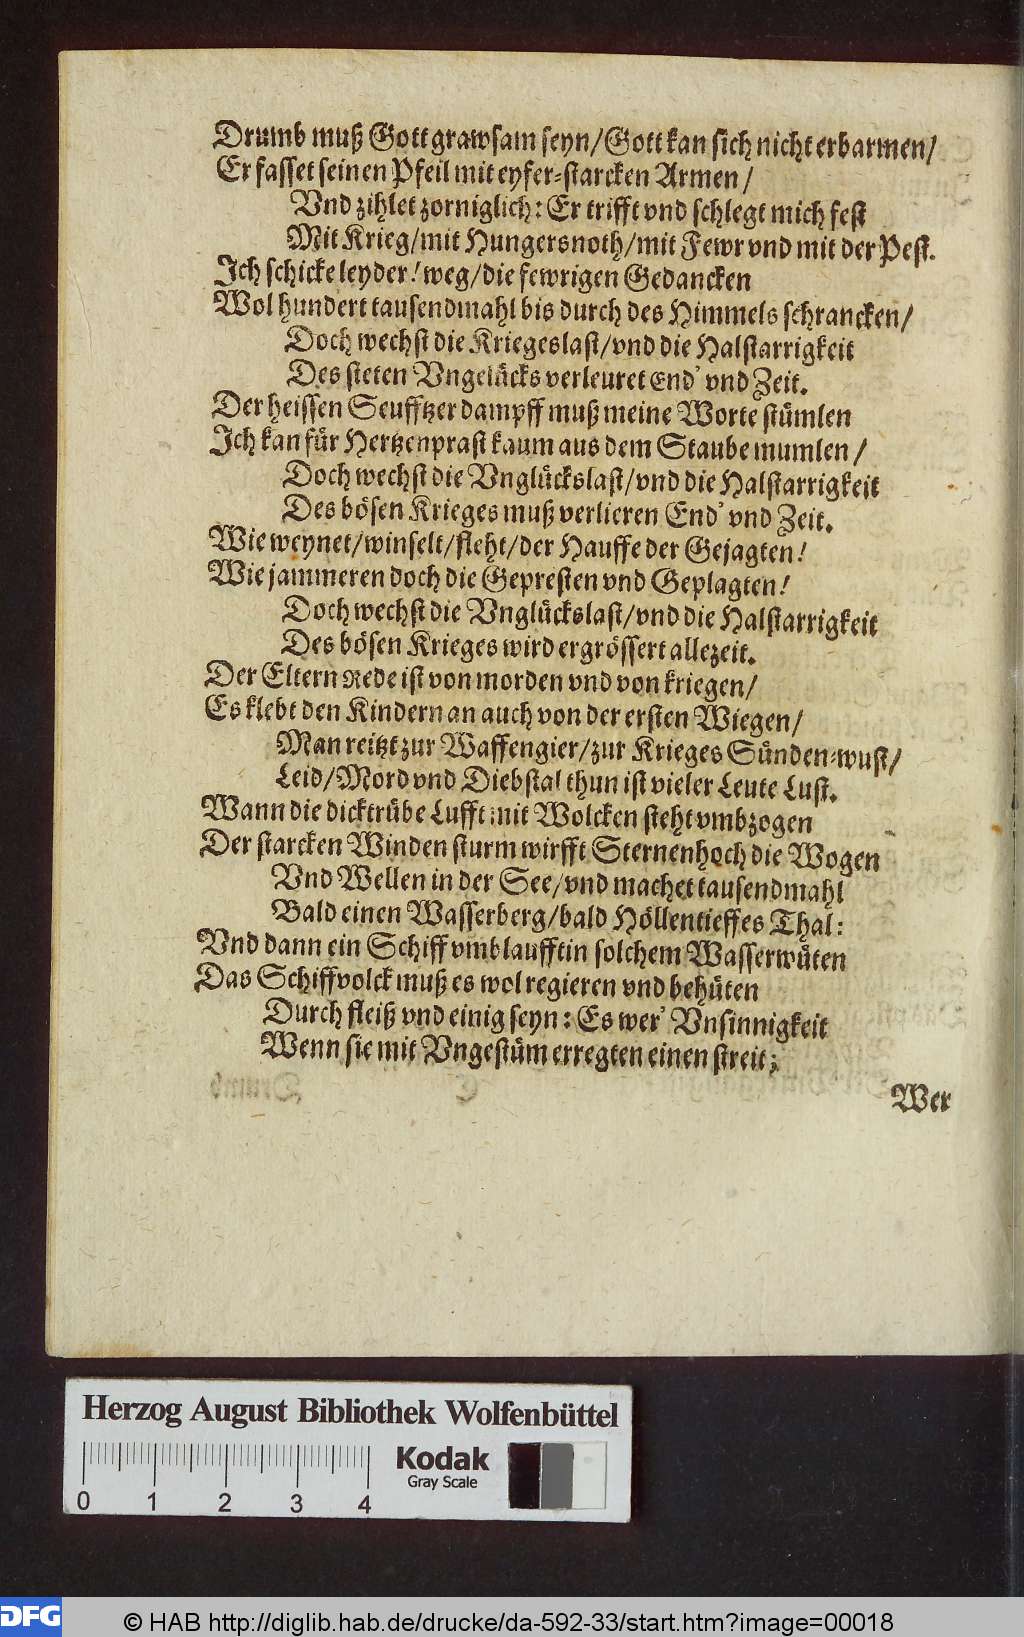 Drumb muß Gott grawsam seyn/Gott kan sich nicht erbarmen/
Er fasset seinen Pfeil mit eyfer-starcken Armen/
Vnd zihlet zorniglich: Er trifft vnd schlegt mich fest
Mit Krieg/mit Hungersnoth/mit Fewr vnd mit der Pest.
Ich schicke leyder! weg/die fewrigen Gedancken
Wol hundert tausendmahl bis durch des Himmels schrancken/
Doch wechst die Kriegeslast/vnd die Halstarrigkeit
Des steten Vngelücks verleuret End' vnd Zeit.
Der heissen Seufftzer dampff muß meine Worte stümlen
Ich kan für Hertzenprast kaum aus dem Staube mumlen/
Doch wechst die Vnglückslast/vnd die Halstarrigkeit
Des bösen Krieges muß verlieren End' vnd Zeit.
Wie weynet/winselt/fleht/der Hauffe der Gejagten!
Wie jammeren doch die Gepresten vnd Geplagten!
Doch wechst die Vnglückslast/vnd die Halstarrigkeit
Des bösen Krieges wird ergrössert allezeit.
Der Eltern Rede ist von morden vnd von kriegen/
Es klebt den Kindern an auch von der ersten Wiegen/
Man reitzt zur Waffengier/zur Krieges Sünden-wust/
Leid/Mord vnd Diebstal thun ist vieler Leute Lust.
Wann die dicktrübe Lufft mit Wolcken steht vmbzogen
Der starcken Winden sturm wirfft Sternenhoch die Wogen
Vnd Wellen in der See/vnd machet tausendmahl
Bald einen Wasserberg/bald Höllentieffes Thal:
Vnd dann ein Schiff vmblaufft in solchem Wasserwüten
Das Schiffvolck muß es wol regieren vnd behüten
Durch fleiß vnd einig seyn: Es wer' Vnsinnigkeit
Wenn sie mit Vngestüm erregten einen streit;
Wer
Herzog August Bibliothek Wolfenbüttel
Kodak
Gray Scale
0 1 2 3 4
DFG © HAB http://diglib.hab.de/drucke/da-592-33/start.htm?image=00018